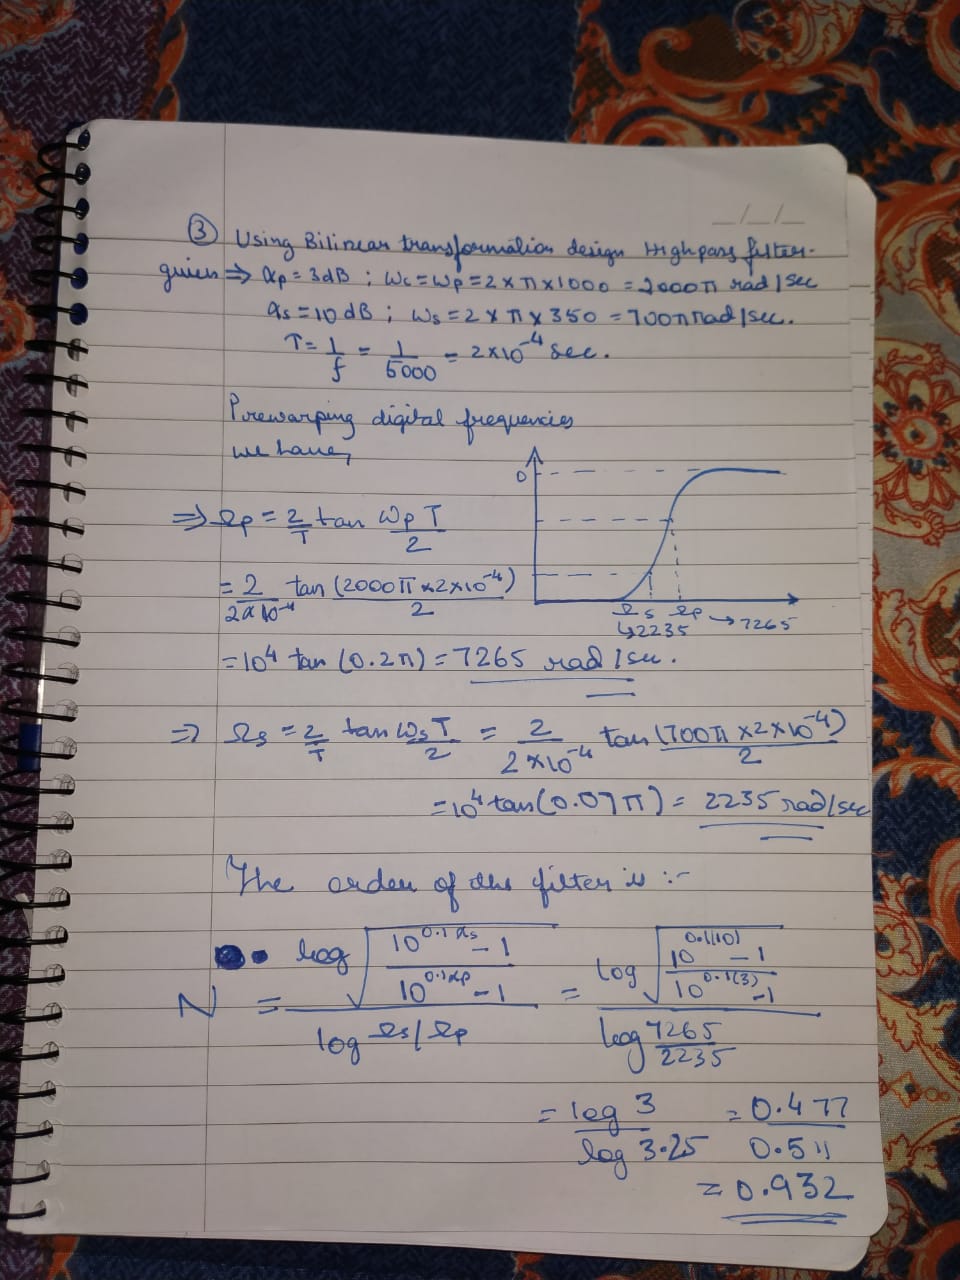 _/_/_
③ Using Bilinear transformation design Highpass filter.
given ⇒ αp = 3dB ; ωc = ωp = 2 × π × 1000 = 2000π rad/sec
αs = 10 dB ; ωs = 2 × π × 350 = 700π rad/sec.
T = 1/f = 1/5000 = 2×10⁻⁴ sec.
Prewarping digital frequencies
we have,
0
⇒ Ωp = 2/T tan ωpT/2
= 2/2×10⁻⁴ tan (2000π×2×10⁻⁴)/2
Ωs Ωp → 7265
↳2235
= 10⁴ tan (0.2π) = 7265 rad/sec.
⇒ Ωs = 2/T tan ωsT/2 = 2/2×10⁻⁴ tan (700π×2×10⁻⁴)/2
= 10⁴ tan (0.07π) = 2235 rad/sec
The order of the filter is :-
N = log √(10^0.1αs - 1 / 10^0.1αp - 1) / log Ωs/Ωp = log √(10^0.1(10) - 1 / 10^0.1(3) - 1) / log 7265/2235
= log 3 / log 3.25 = 0.477 / 0.511
= 0.932